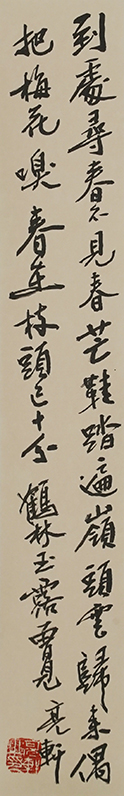 到處尋春不見春芒鞋踏遍嶺頭雲歸来偶
把梅花嗅春在枝頭已十分鶴林玉露有見 亮軒